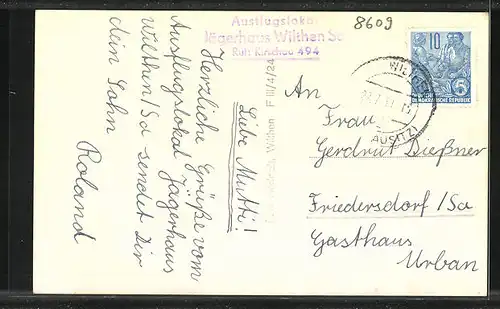 Ausflugslokal
Jägerhaus Wilthen Sa
Ruf: Kirschau 494
8609
10
5
DEUTSCHE DEMOKRATISCHE REPUBLIK
WILTHEN
(LAUSITZ)
Wilthen F III/4/24
Liebe Mutti!
Herzliche Grüße vom
Ausflugslokal Jägerhaus
Wilthen/Sa sendet Dir
dein Sohn
Roland
An
Frau
Gerdrut Dießner
Friedersdorf/Sa
Gasthaus
Urban